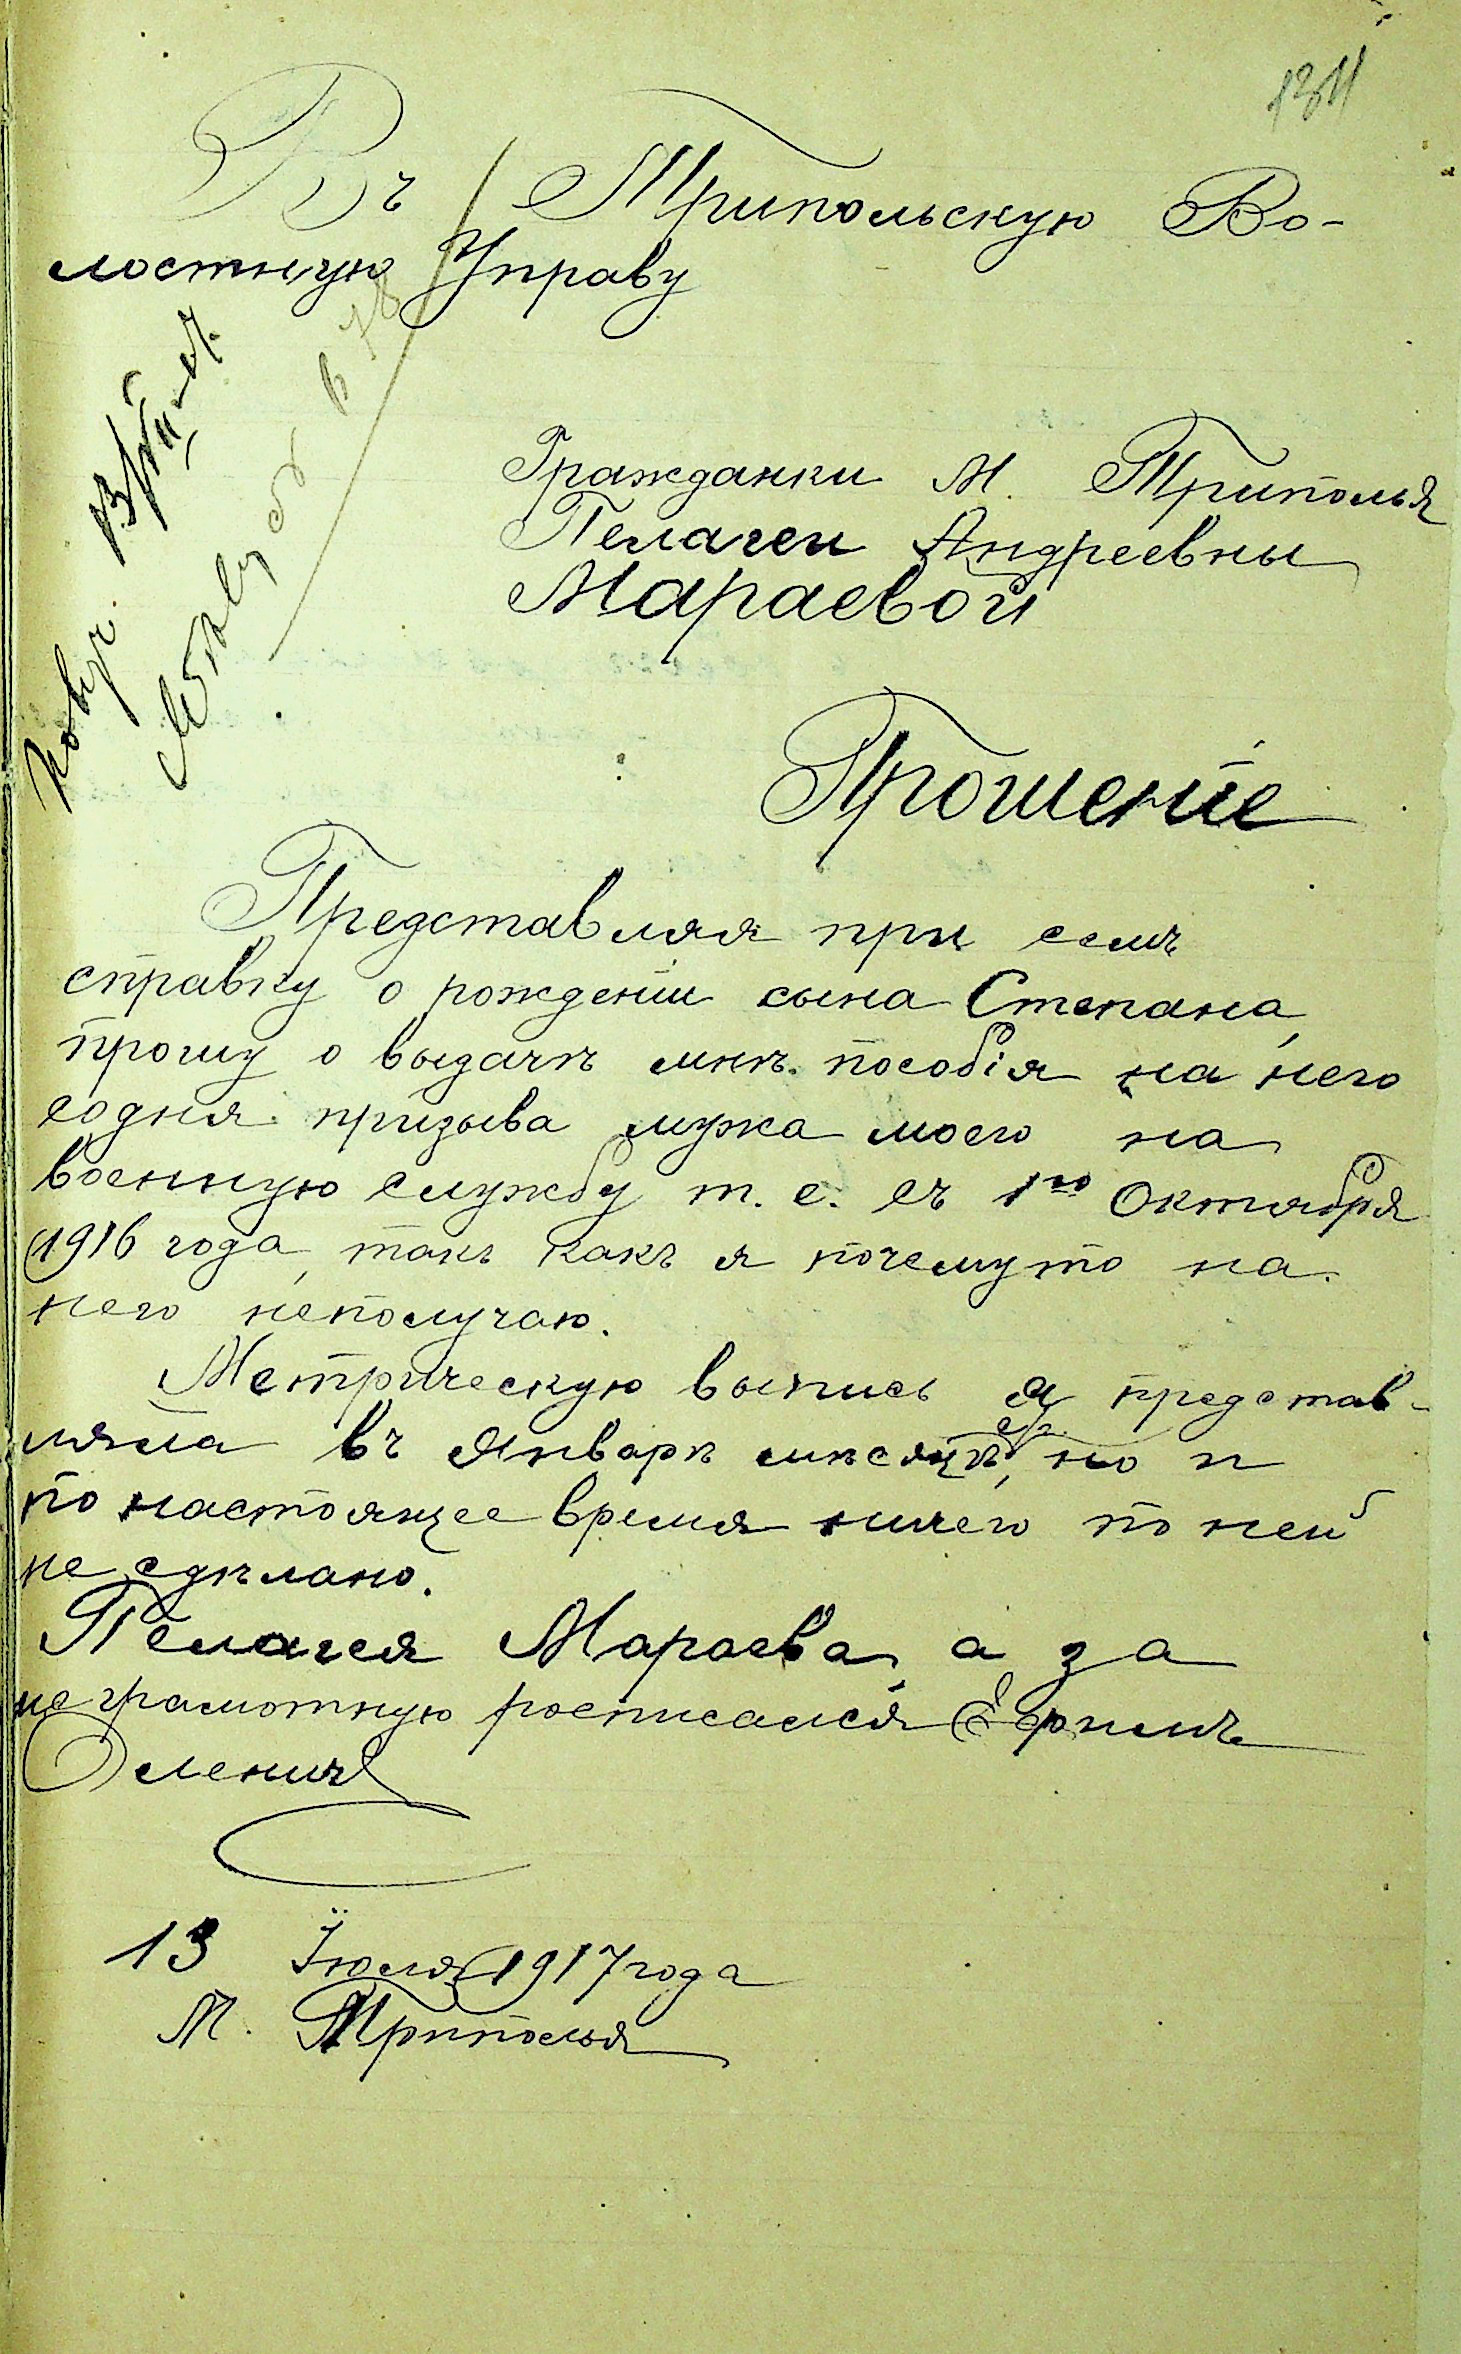 Въ Трипольскую Во-
лостную Управу
Гражданки М. Триполья
Пелагеи Андреевны
Мараевой
Прошеніе
Представляя при семъ
справку о рожденіи сына Степана,
прошу о выдачѣ мнѣ пособія на него
содня призыва мужа моего на
военную службу т. е. съ 1го Октября
1916 года, такъ какъ я почемуто на
него неполучаю.
Метрическую выпись я представ-
ляла въ Январѣ мѣсяцѣ, но и
по настоящее время ничего по ней
не сдѣлано.
Пелагея Мараева, а за
неграмотную росписался Ефимъ
Оленичъ
13 Іюля 1917 года
М. Триполья